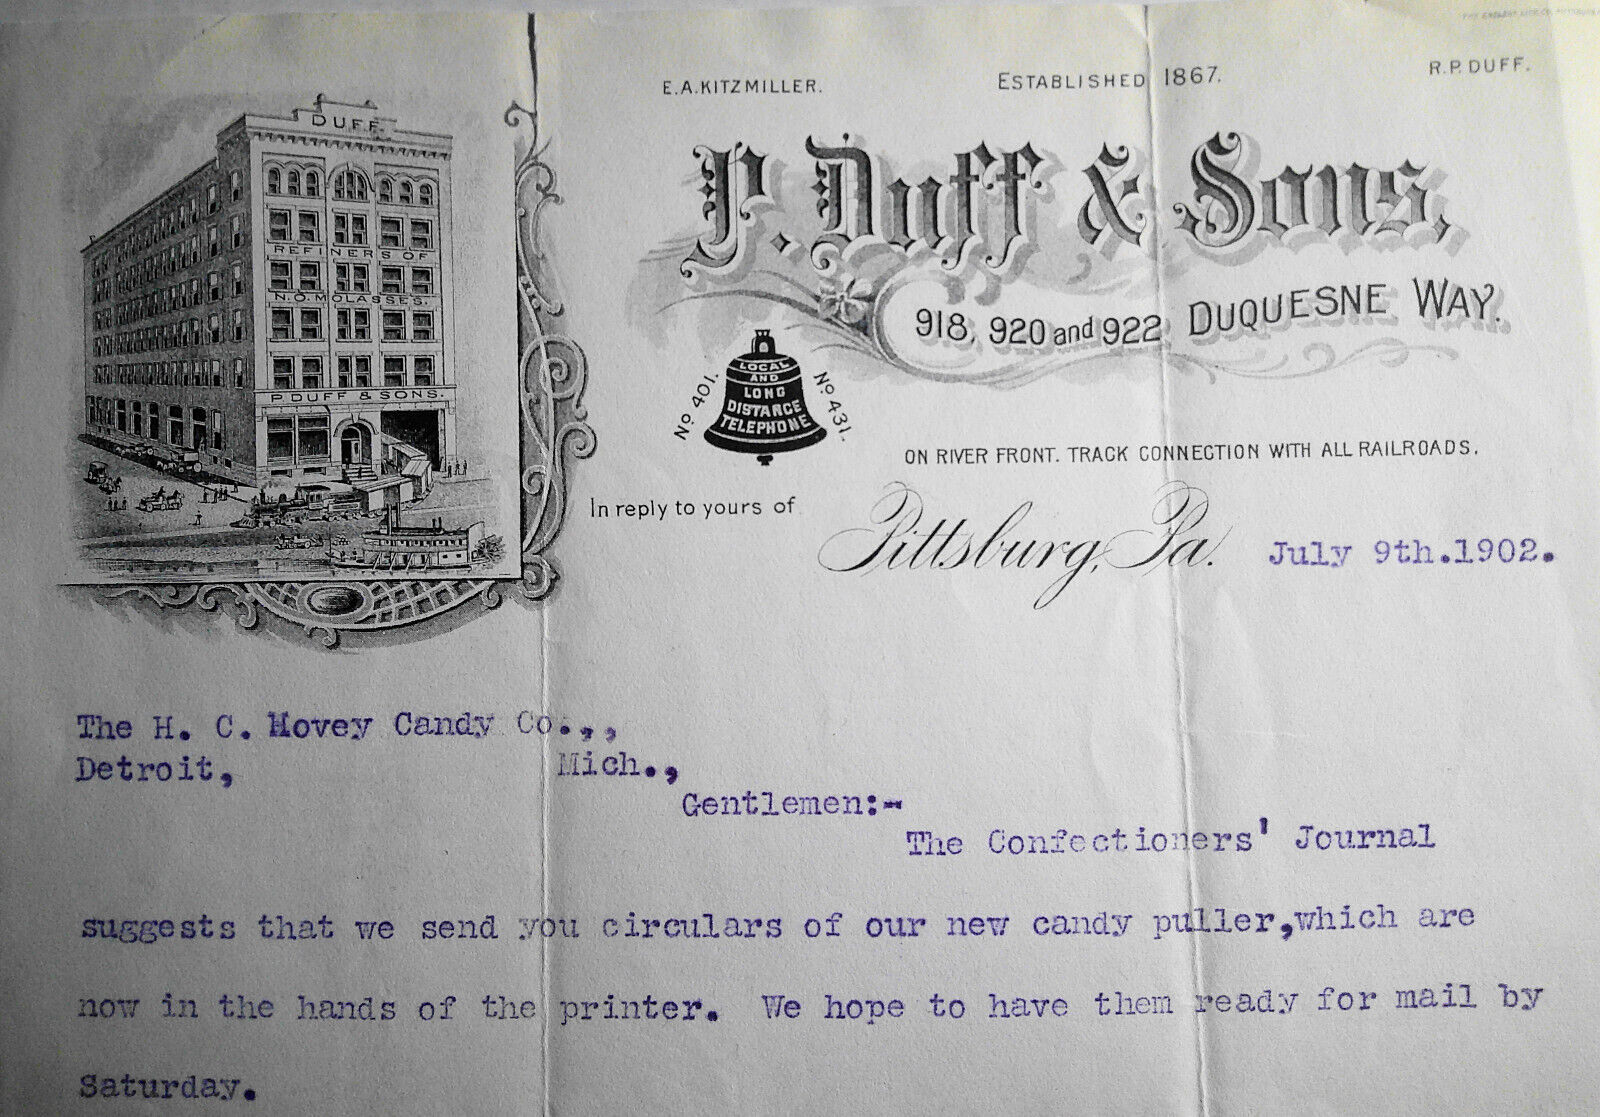 E.A.KITZMILLER.
ESTABLISHED 1867.
R.P. DUFF.
P. Duff & Sons,
918, 920 and 922 DUQUESNE WAY.
DUFF.
REFINERS OF
N.O. MOLASSES.
P. DUFF & SONS.
No 401.
LOCAL
AND
LONG
DISTANCE
TELEPHONE
No 431.
ON RIVER FRONT. TRACK CONNECTION WITH ALL RAILROADS.
In reply to yours of
Pittsburg, Pa. July 9th.1902.
The H. C. Hovey Candy Co.,,
Detroit, Mich.,
Gentlemen:-
The Confectioners' Journal
suggests that we send you circulars of our new candy puller,which are
now in the hands of the printer. We hope to have them ready for mail by
Saturday.